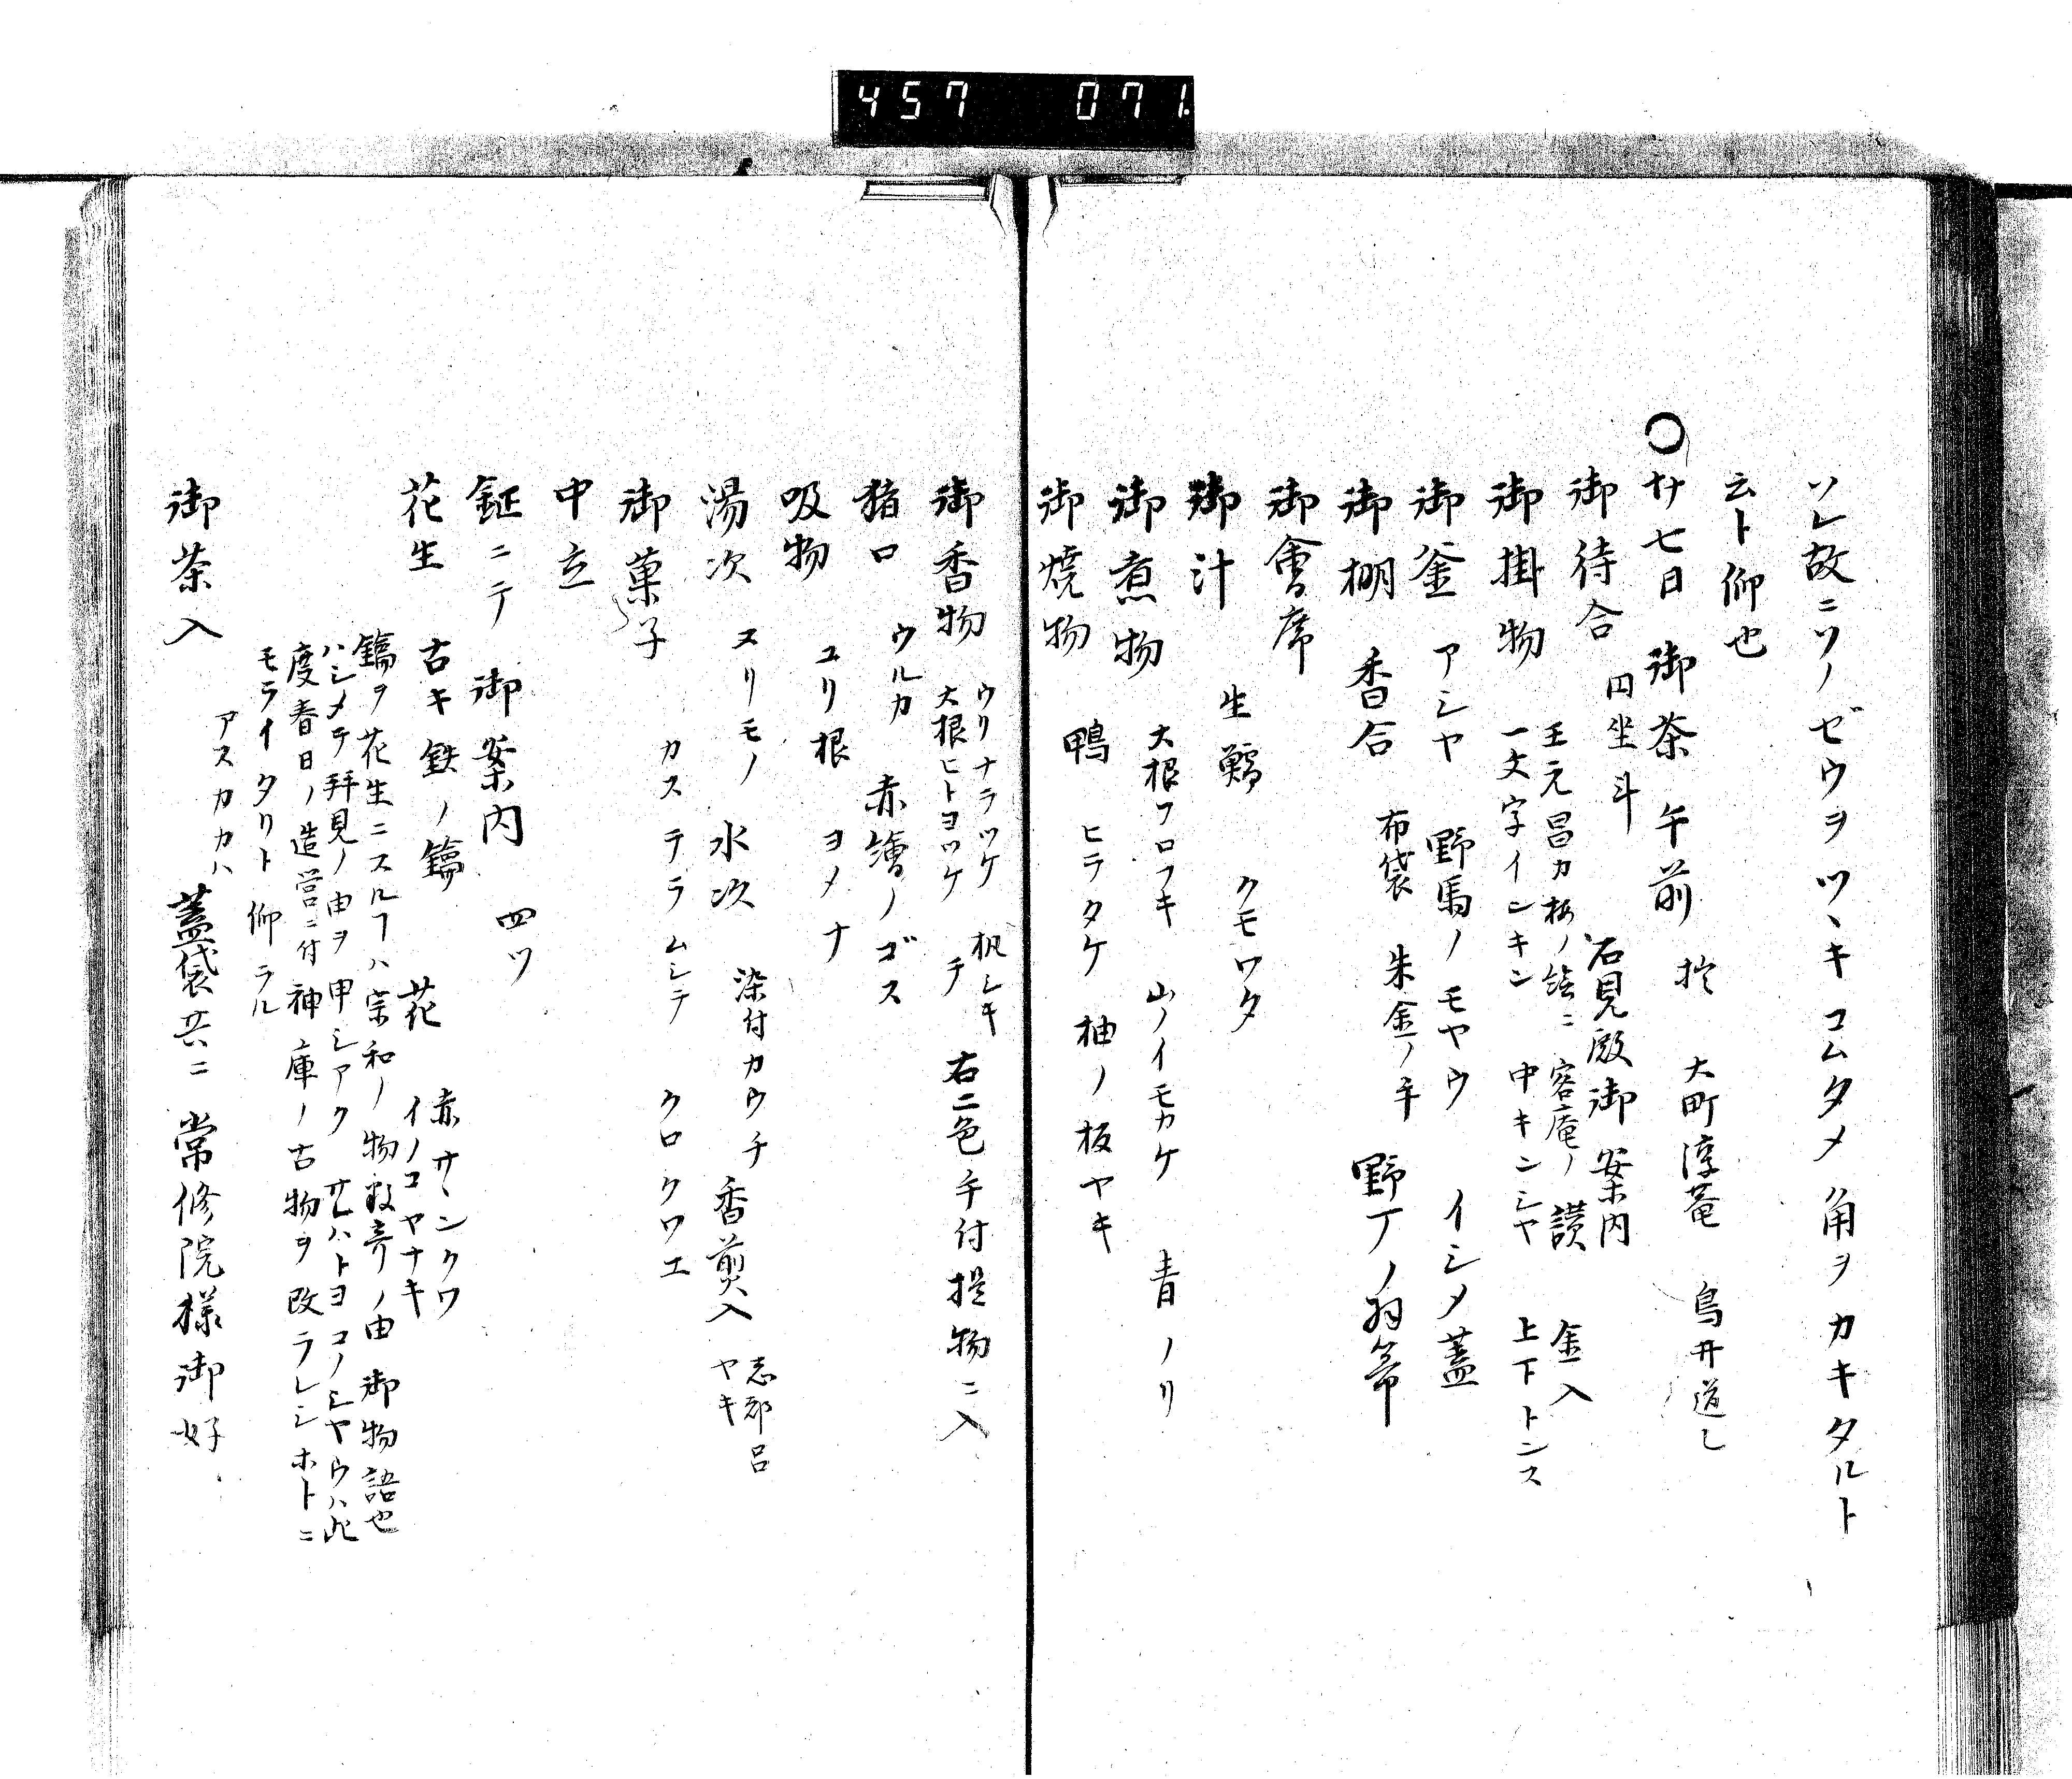 457 071
ソレ故ニツノゼウヲツヽキコムタメノ角ヲカキタルト
云ト仰也
〇廿七日 御茶 午前 於 大町淳菴 鳥井道し
御待合 円坐 斗 石見殿御案内
御掛物 王元昌カ梅ノ絵ニ 容庵ノ讃 金入
一文字インキン 中キンシヤ 上下トンス
御釜 アシヤ 野馬ノモヤウ イシメ蓋
御棚 香合 布袋 朱金ノ手 野丁ノ羽箒
御會席
御汁 生鱈 クモワタ
御煮物 大根フロフキ 山ノイモカケ 青ノリ
御焼物 鴨 ヒラタケ 柚ノ板ヤキ
御香物 ウリナラツケ
大根ヒトヨツケ 右二色手付提物ニ入
猪口 ウルカ 赤繪ノゴス
吸物 ユリ根 ヨメナ
湯次 ヌリモノ 水次 染付カウチ 香煎入 志都呂
ヤキ
御菓子 カステラムシテ クロクワエ
中立
鉦ニテ 御案内 四ツ
花生 古キ鉄ノ鑰 花 赤サンクワ
イノコヤナキ
鑰ヲ花生ニスルヿハ宗和ノ物数寄ノ由 御物語也
ハシメテ拝見ノ由ヲ申シアク サレハトヨコノシヤウハ此
度春日ノ造営ニ付神庫ノ古物ヲ改ラレシホトニ
モライタリト仰ラル
御茶入 アスカカハ 蓋袋共ニ 常修院様御好